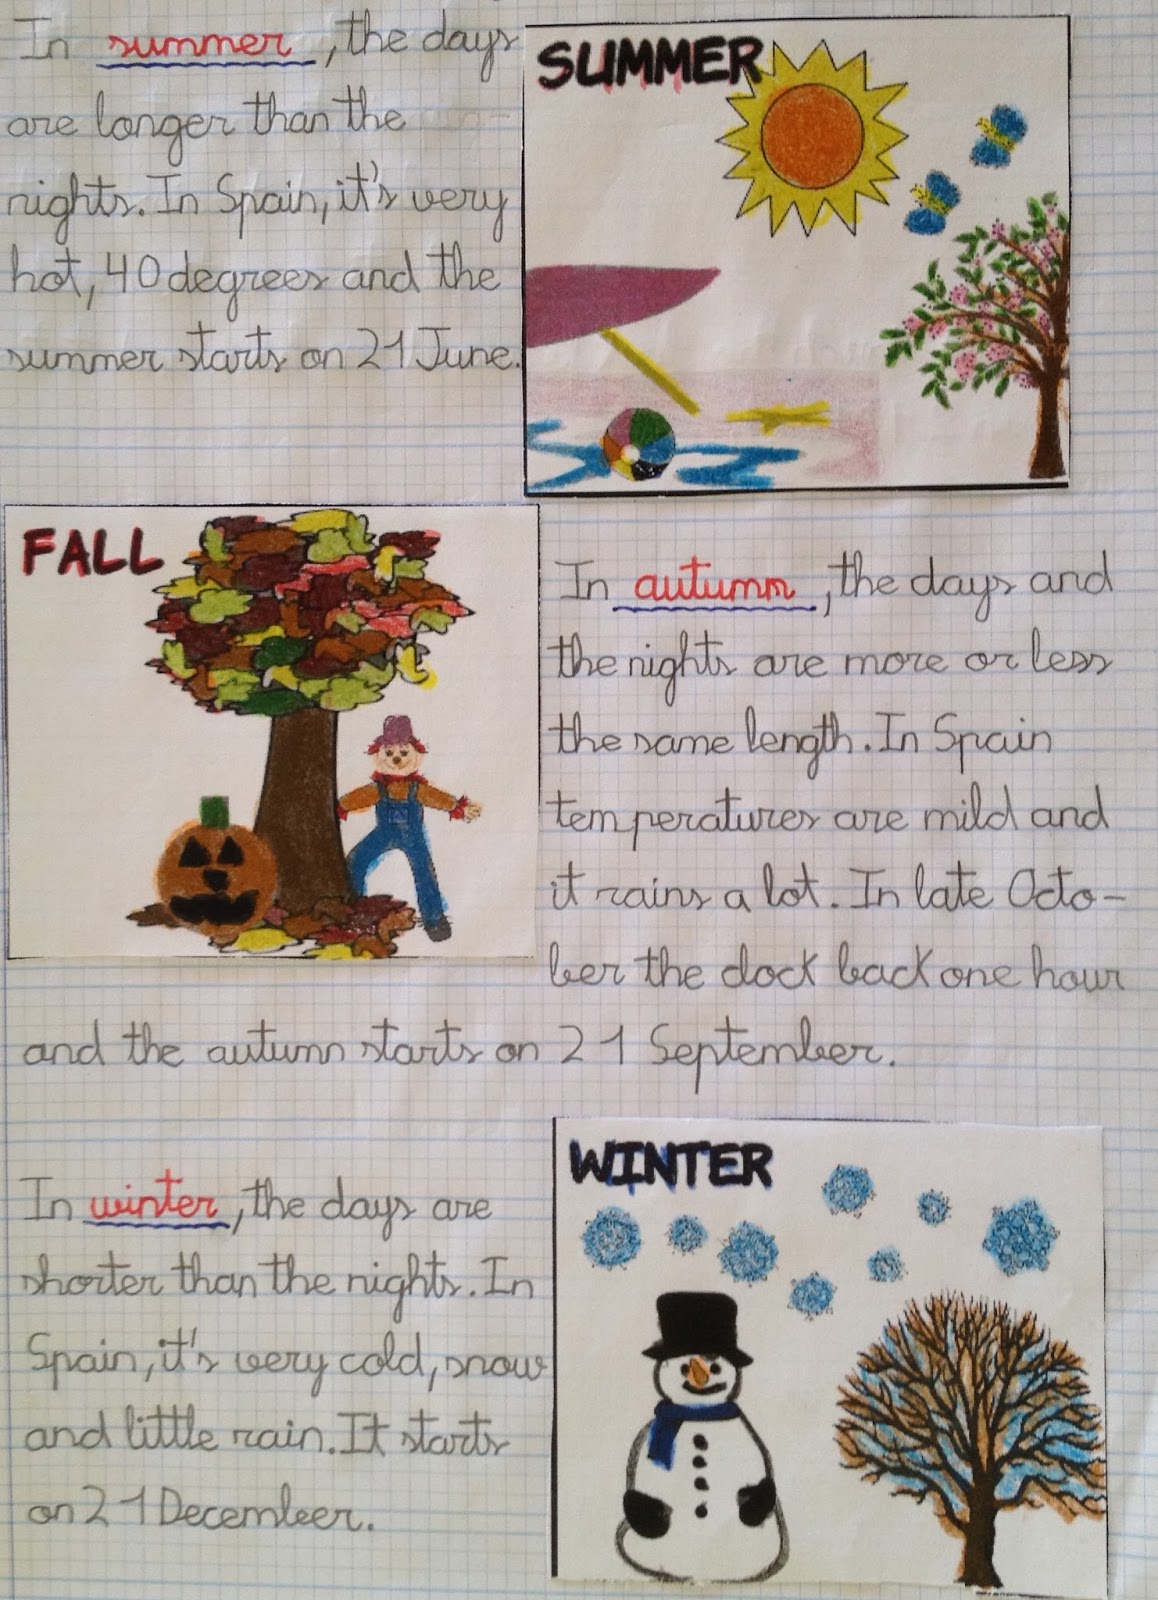 In summer, the days
are longer than the
nights. In Spain, it's very
hot, 40 degrees and the
summer starts on 21 June.
SUMMER
FALL
In autumn, the days and
the nights are more or less
the same length. In Spain
temperatures are mild and
it rains a lot. In late Octo-
ber the clock back one hour
and the autumn starts on 21 September.
In winter, the days are
shorter than the nights. In
Spain, it's very cold, snow
and little rain. It starts
on 21 December.
WINTER